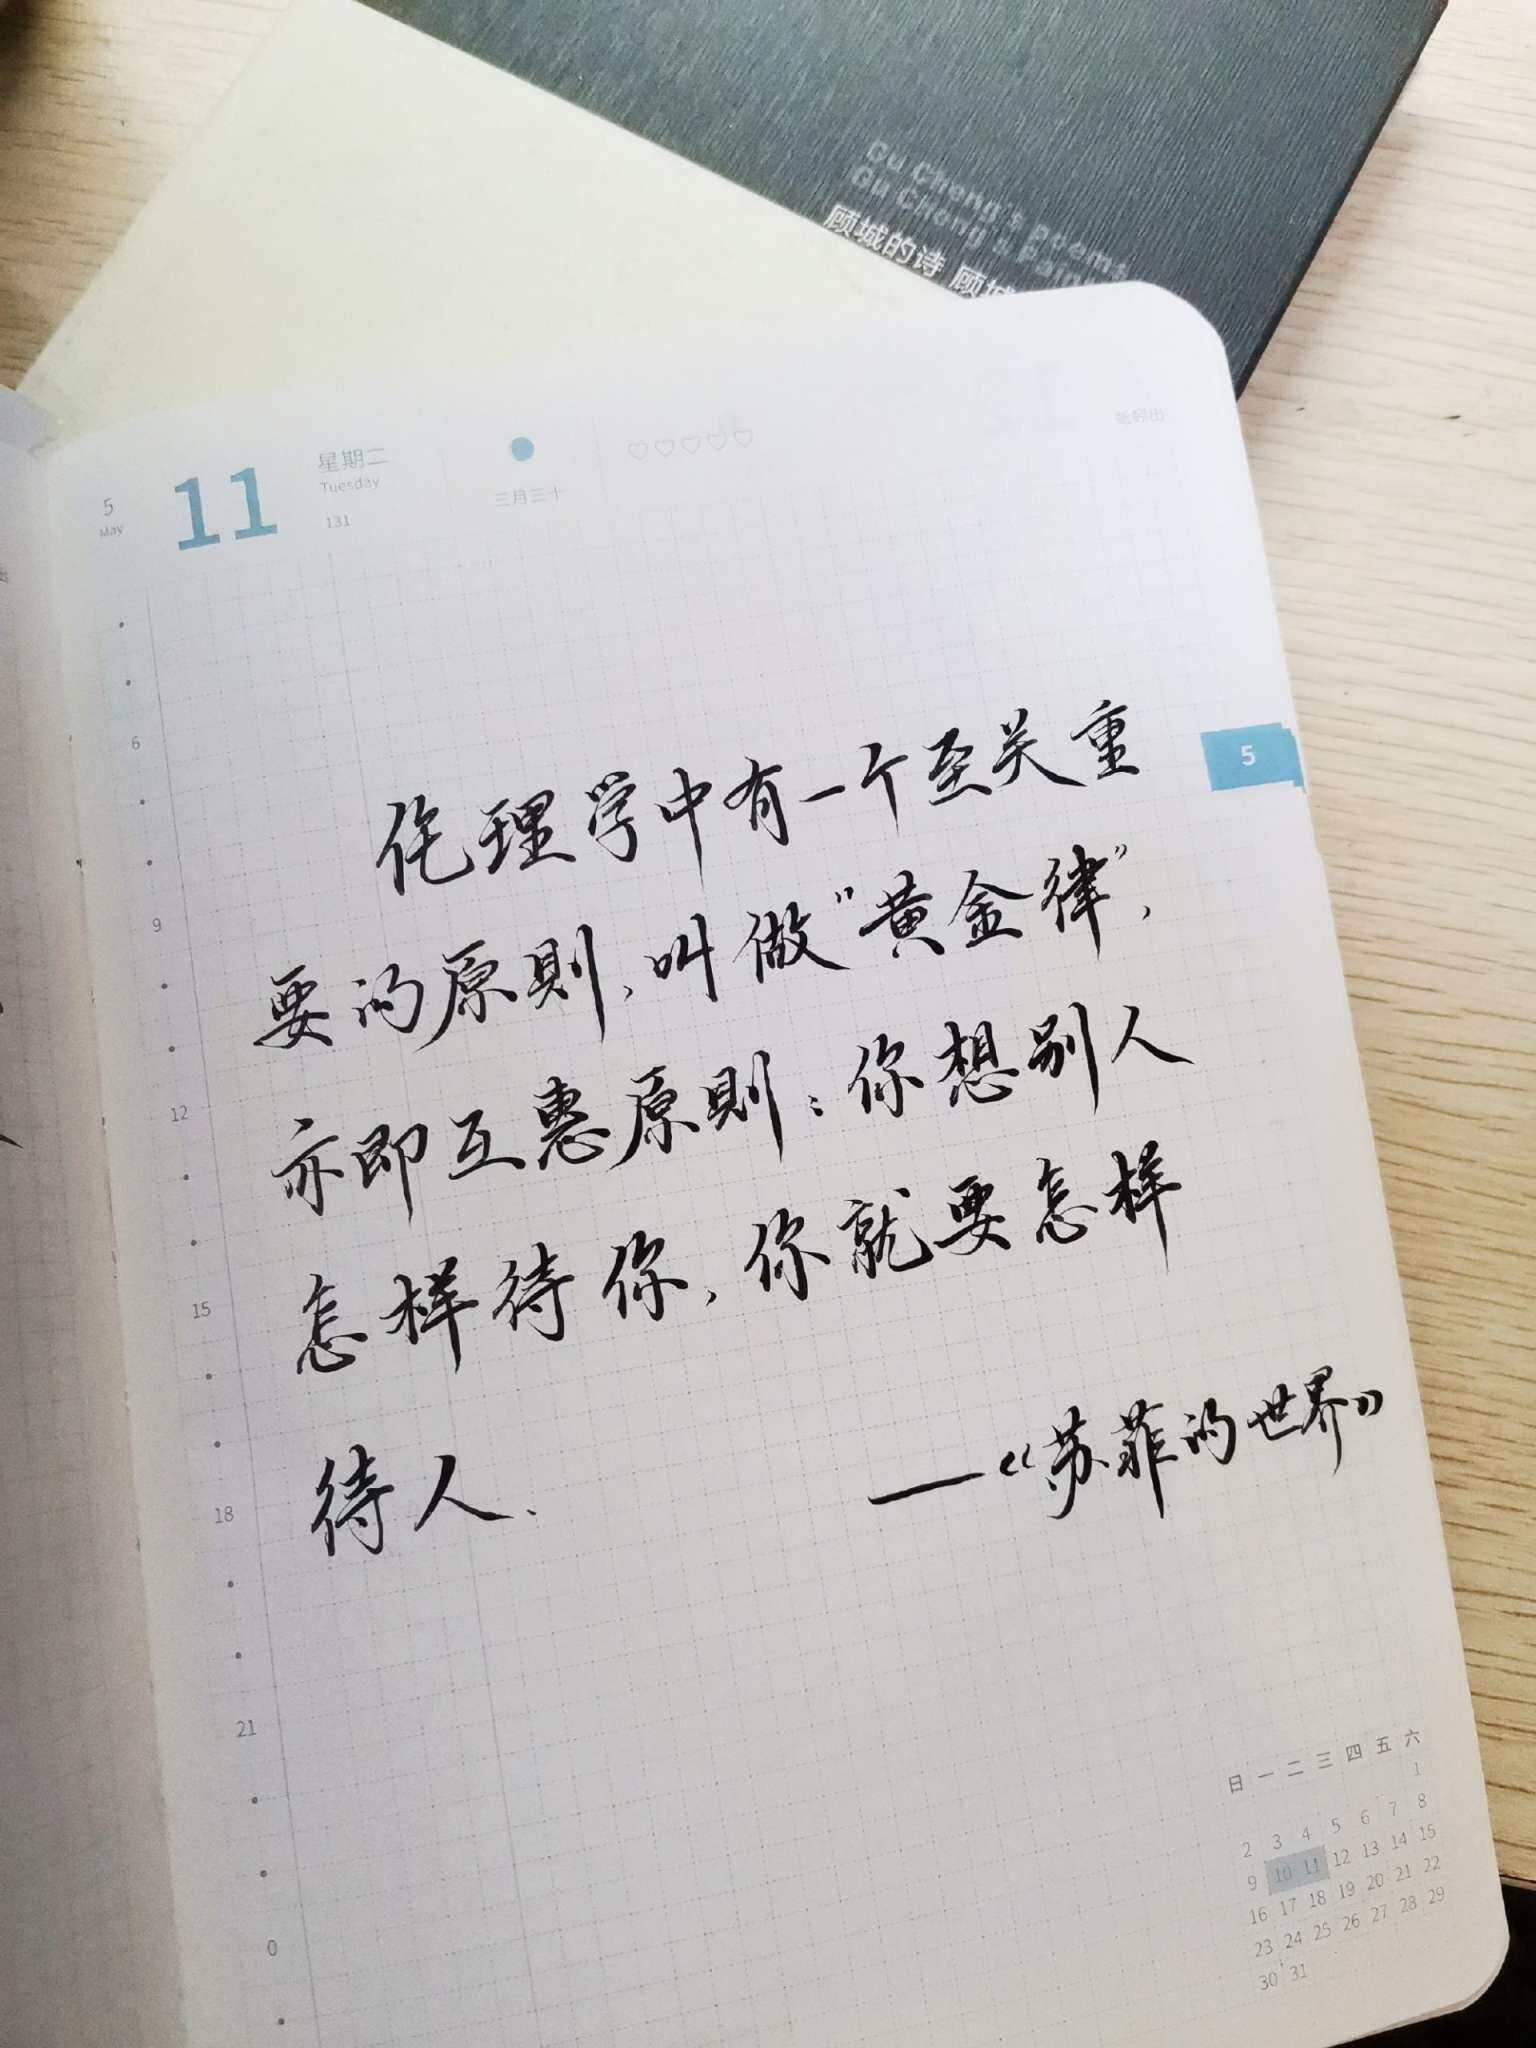 Gu Cheng's poems
Gu Cheng's Pain
顾城的诗 顾城
5
May
11
星期二
Tuesday
131
三月三十
5
伦理学中有一个至关重
要的原則,叫做"黄金律",
亦即互惠原則:你想别人
怎样待你,你就要怎样
待人.
—《苏菲的世界》
6
9
12
15
18
21
0
日 一 二 三 四 五 六
1
2 3 4 5 6 7 8
9 10 11 12 13 14 15
16 17 18 19 20 21 22
23 24 25 26 27 28 29
30 31